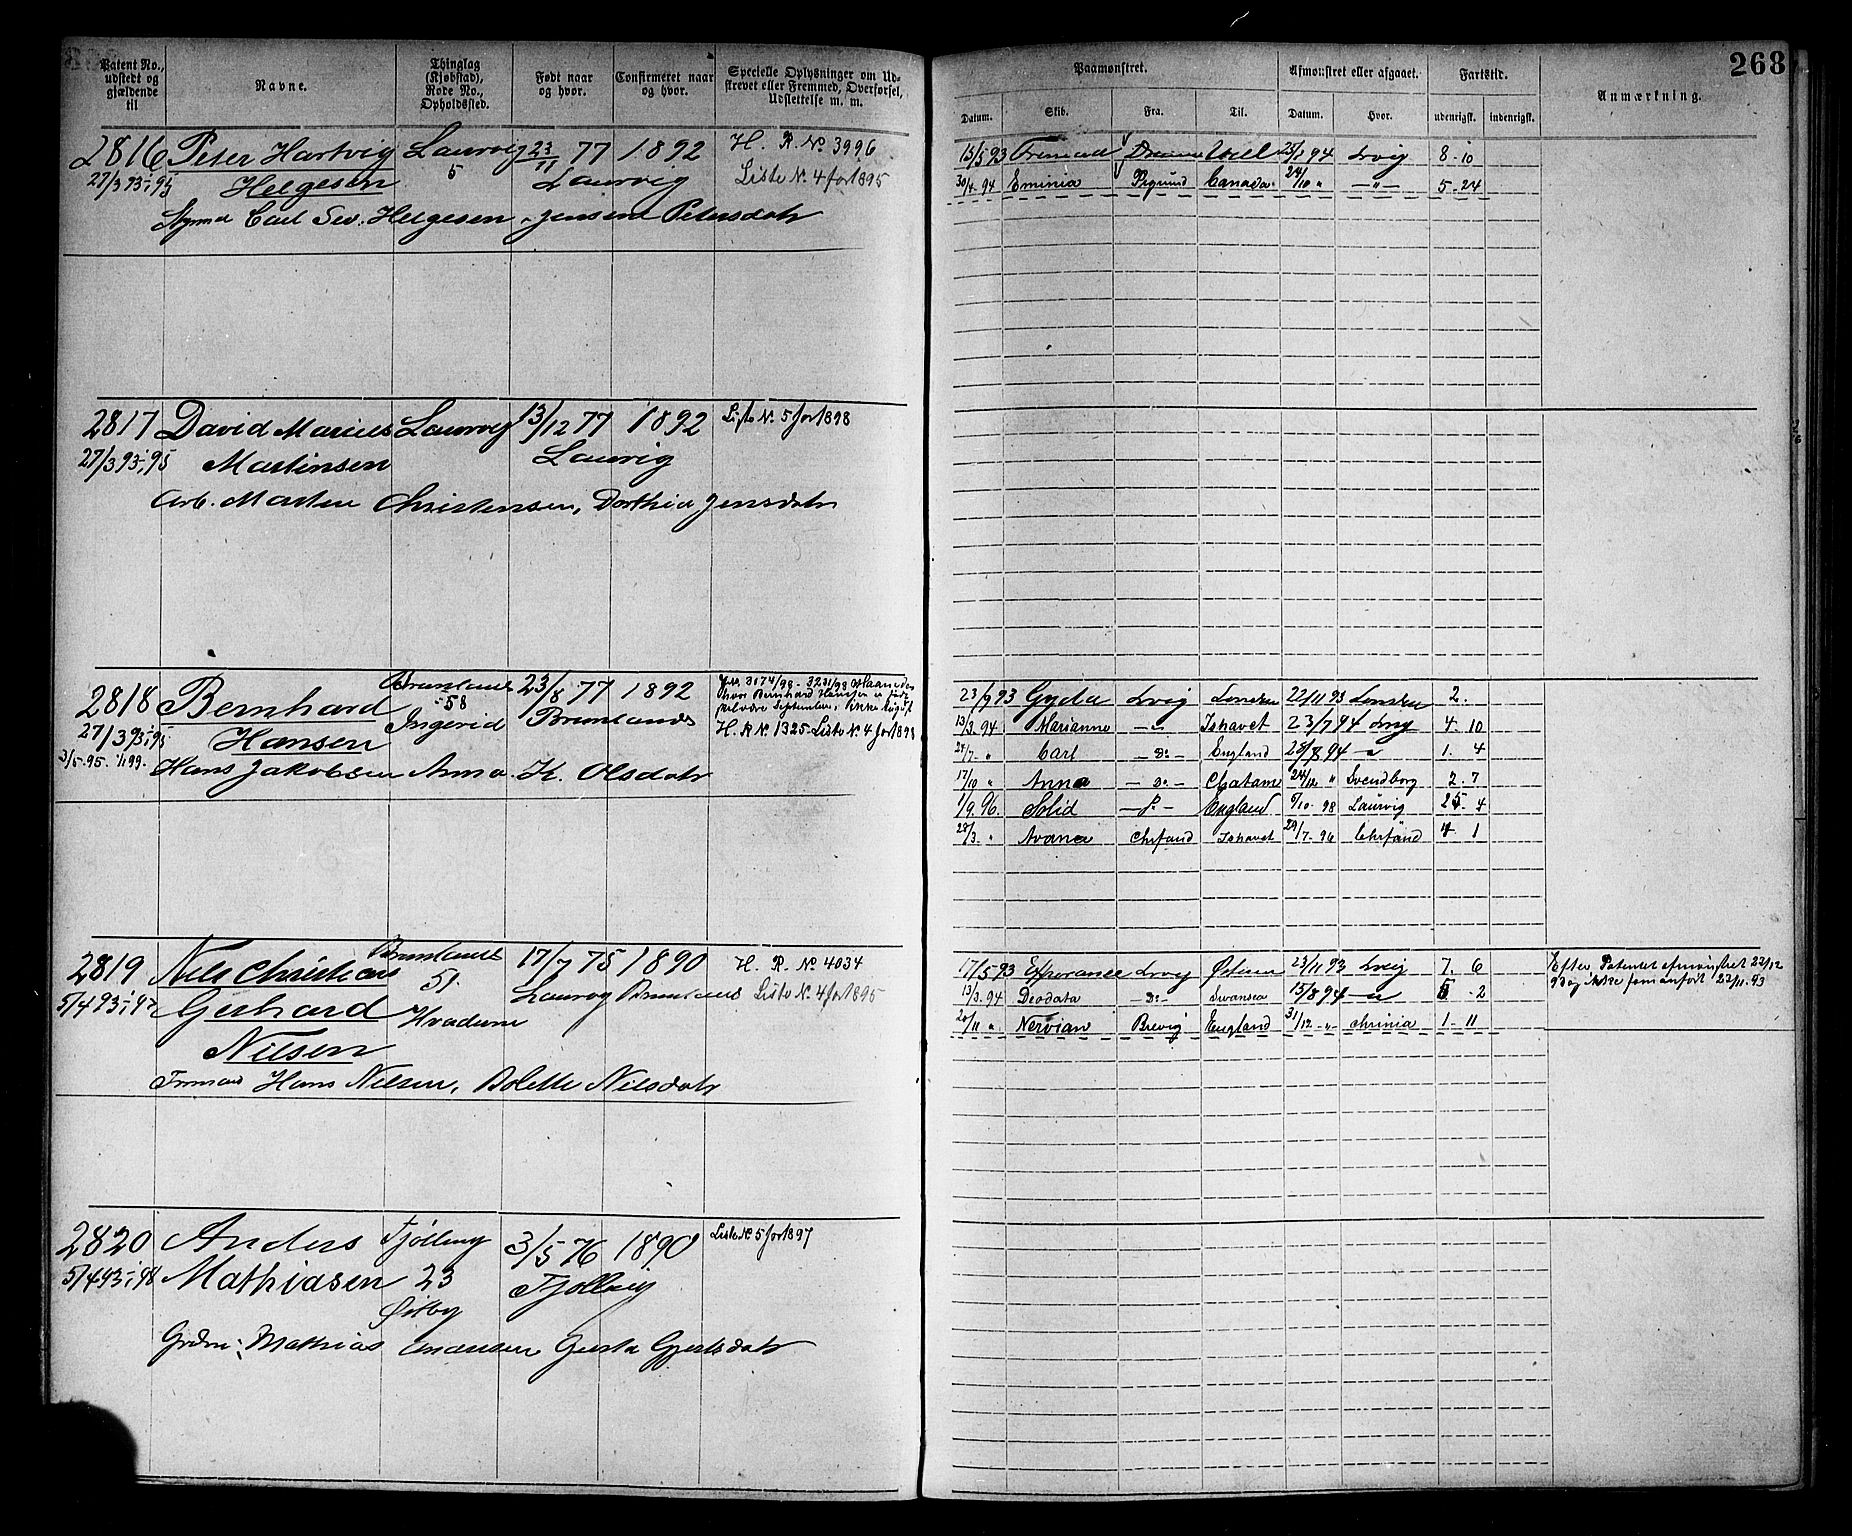 268
Patent No., udstedt og gjældende til
Navne.
Thinglag (Kjøbstad), Rode No., Opholdssted.
Født naar og hvor.
Confirmeret naar og hvor.
Specielle Oplysninger om Udstrevet eller Fremmed, Overførsel, Udslettelse m. m.
Paamønstret.
Afmønstret eller afgaaet.
Fartstid.
Anmærkning.
Datum. Skib. Fra. Til. Datum. Hvor. udenrigsk. indenrigsk.
2816 Peter Hartvig Laurvig 23/11 77 1892 H. R. No 3996
27/3 93-95 Helgesen 5 Laurvig Liste No. 4 for 1895
Carl Sev. Helgesen Petersdatr
15/5 93 94 Lvig 8-10
30/4 94 Eminia Canada 24/10 " —"— 5-24
2817 David Marius Laurvig 13/12 77 1892 Liste No. 5 for 1898
27/3 93-95 Martinsen Laurvig
Arb. Martin Christensen, Dorthia Jensdatr
2818 Bernhard Brunlanes 23/8 77 1892
58
27/3 93-95 Hansen Ingerid Brunlanes H. R No. 1325 Liste No. 4 for 1898
3/5 95-1/1 99 Hans Jakobsen Anna K. Olsdatr
23/9 93 Gyda Lvig London 22/11 93 London 2.
13/3 94 Marianne —"— Ishavet 23/7 94 Lvig 4-10
24/7 " Carl —Do— England 28/8 94 —"— 1. 4
17/10 " Anna —Do— Chatam 24/12 " Svendborg 2.7
1/9 96. Solid —Do— England 5/10-98 Laurvig 25-4
28/3 " Avance Chrsand Ishavet 29/7-96 Chrsand 4-1
2819 Nils Christian Brunlanes 17/7 75 1890 H. R. No 4034
51.
5/4 93-97 Gerhard Laurvig Brunlanes Liste No. 4 for 1895
Nilsen
Hans Nilsen, Bolette Nilsdatr
17/5 93 Esperance Lvig 23/11 93 Lvig 7. 6 Efter Patentet afmønstret 22/12
13/3 94 Deodata —Do— Swansea 15/8 94 —"— 5-2
20/11 " Nervian Brevig England 31/12 -"- Chrinia 1-11
2820 Anders Tjølling 3/5 76 1890 Liste No. 5 for 1897
5/4 93-98 Mathiasen 23 Tjølling
Østby
Mathias Andersen Gjertsdatr